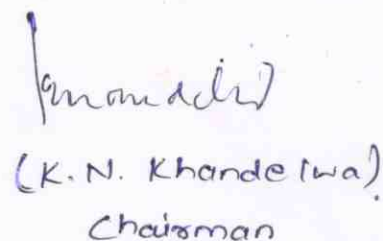 (K. N. Khandelwa)
Chairman